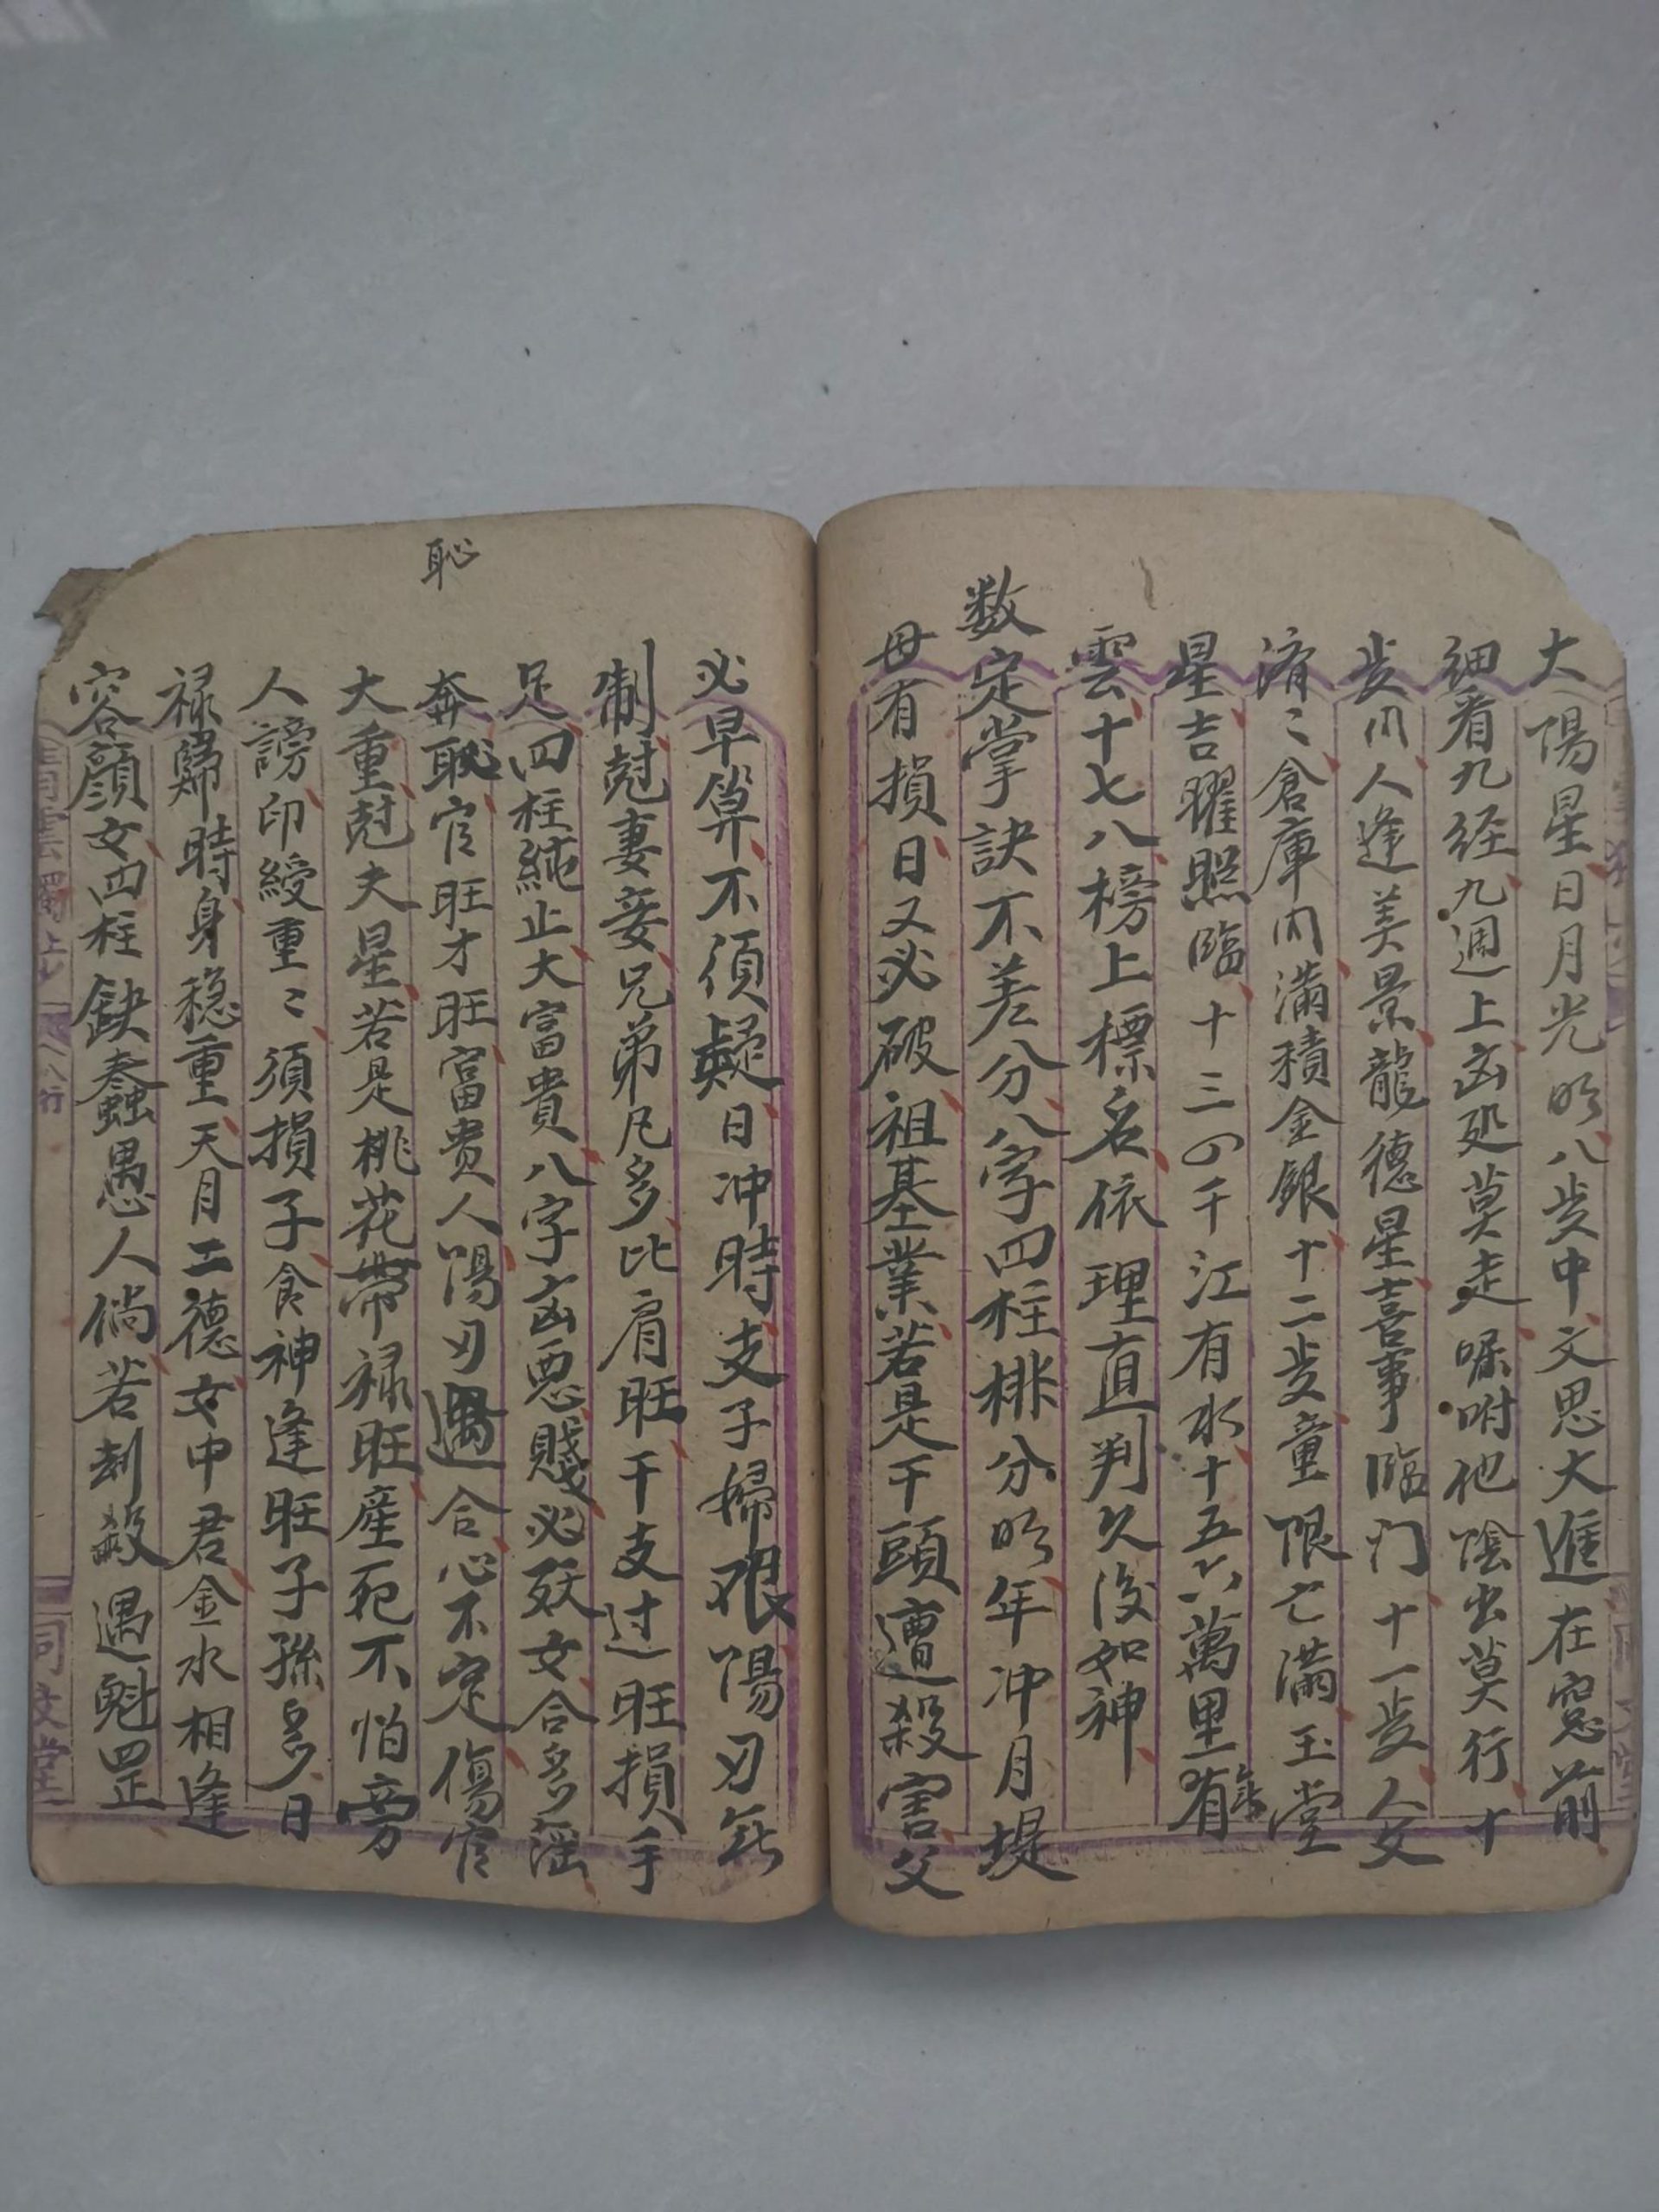 大陽星日月光明八步中文思大進在窓前
細看九经九週上凶処莫走嘱咐他陰出莫行十
步內人逢美景龍德星喜事臨门十一步人女
濟〻倉庫内滿積金銀十二步童限亡滿玉堂
星吉曜照臨十三四千江有水十五六萬里有
雲十七八榜上標名依理直判久後如神
数定掌訣不差分八字四柱排分明年冲月堤
毋有損日又必破祖基業若是干頭遭殺害父
必早算不須疑日冲時支子婦艰陽刃無
制尅妻妾兄弟凡多比肩旺干支过旺損手
足四柱純止大富貴八字凶悪賤必妖女合多滛
奔恥官旺才旺富贵人陽刃遇合心不定傷官
大重尅夫星若是桃花帶禄旺產死不怕旁
人謗印綬重〻須損子食神逢旺子孫多日
禄歸時身穏重天月二德女中君金水相逢
容顔女四柱缺蠢愚人倘若刦殺遇魁罡
恥
同文堂